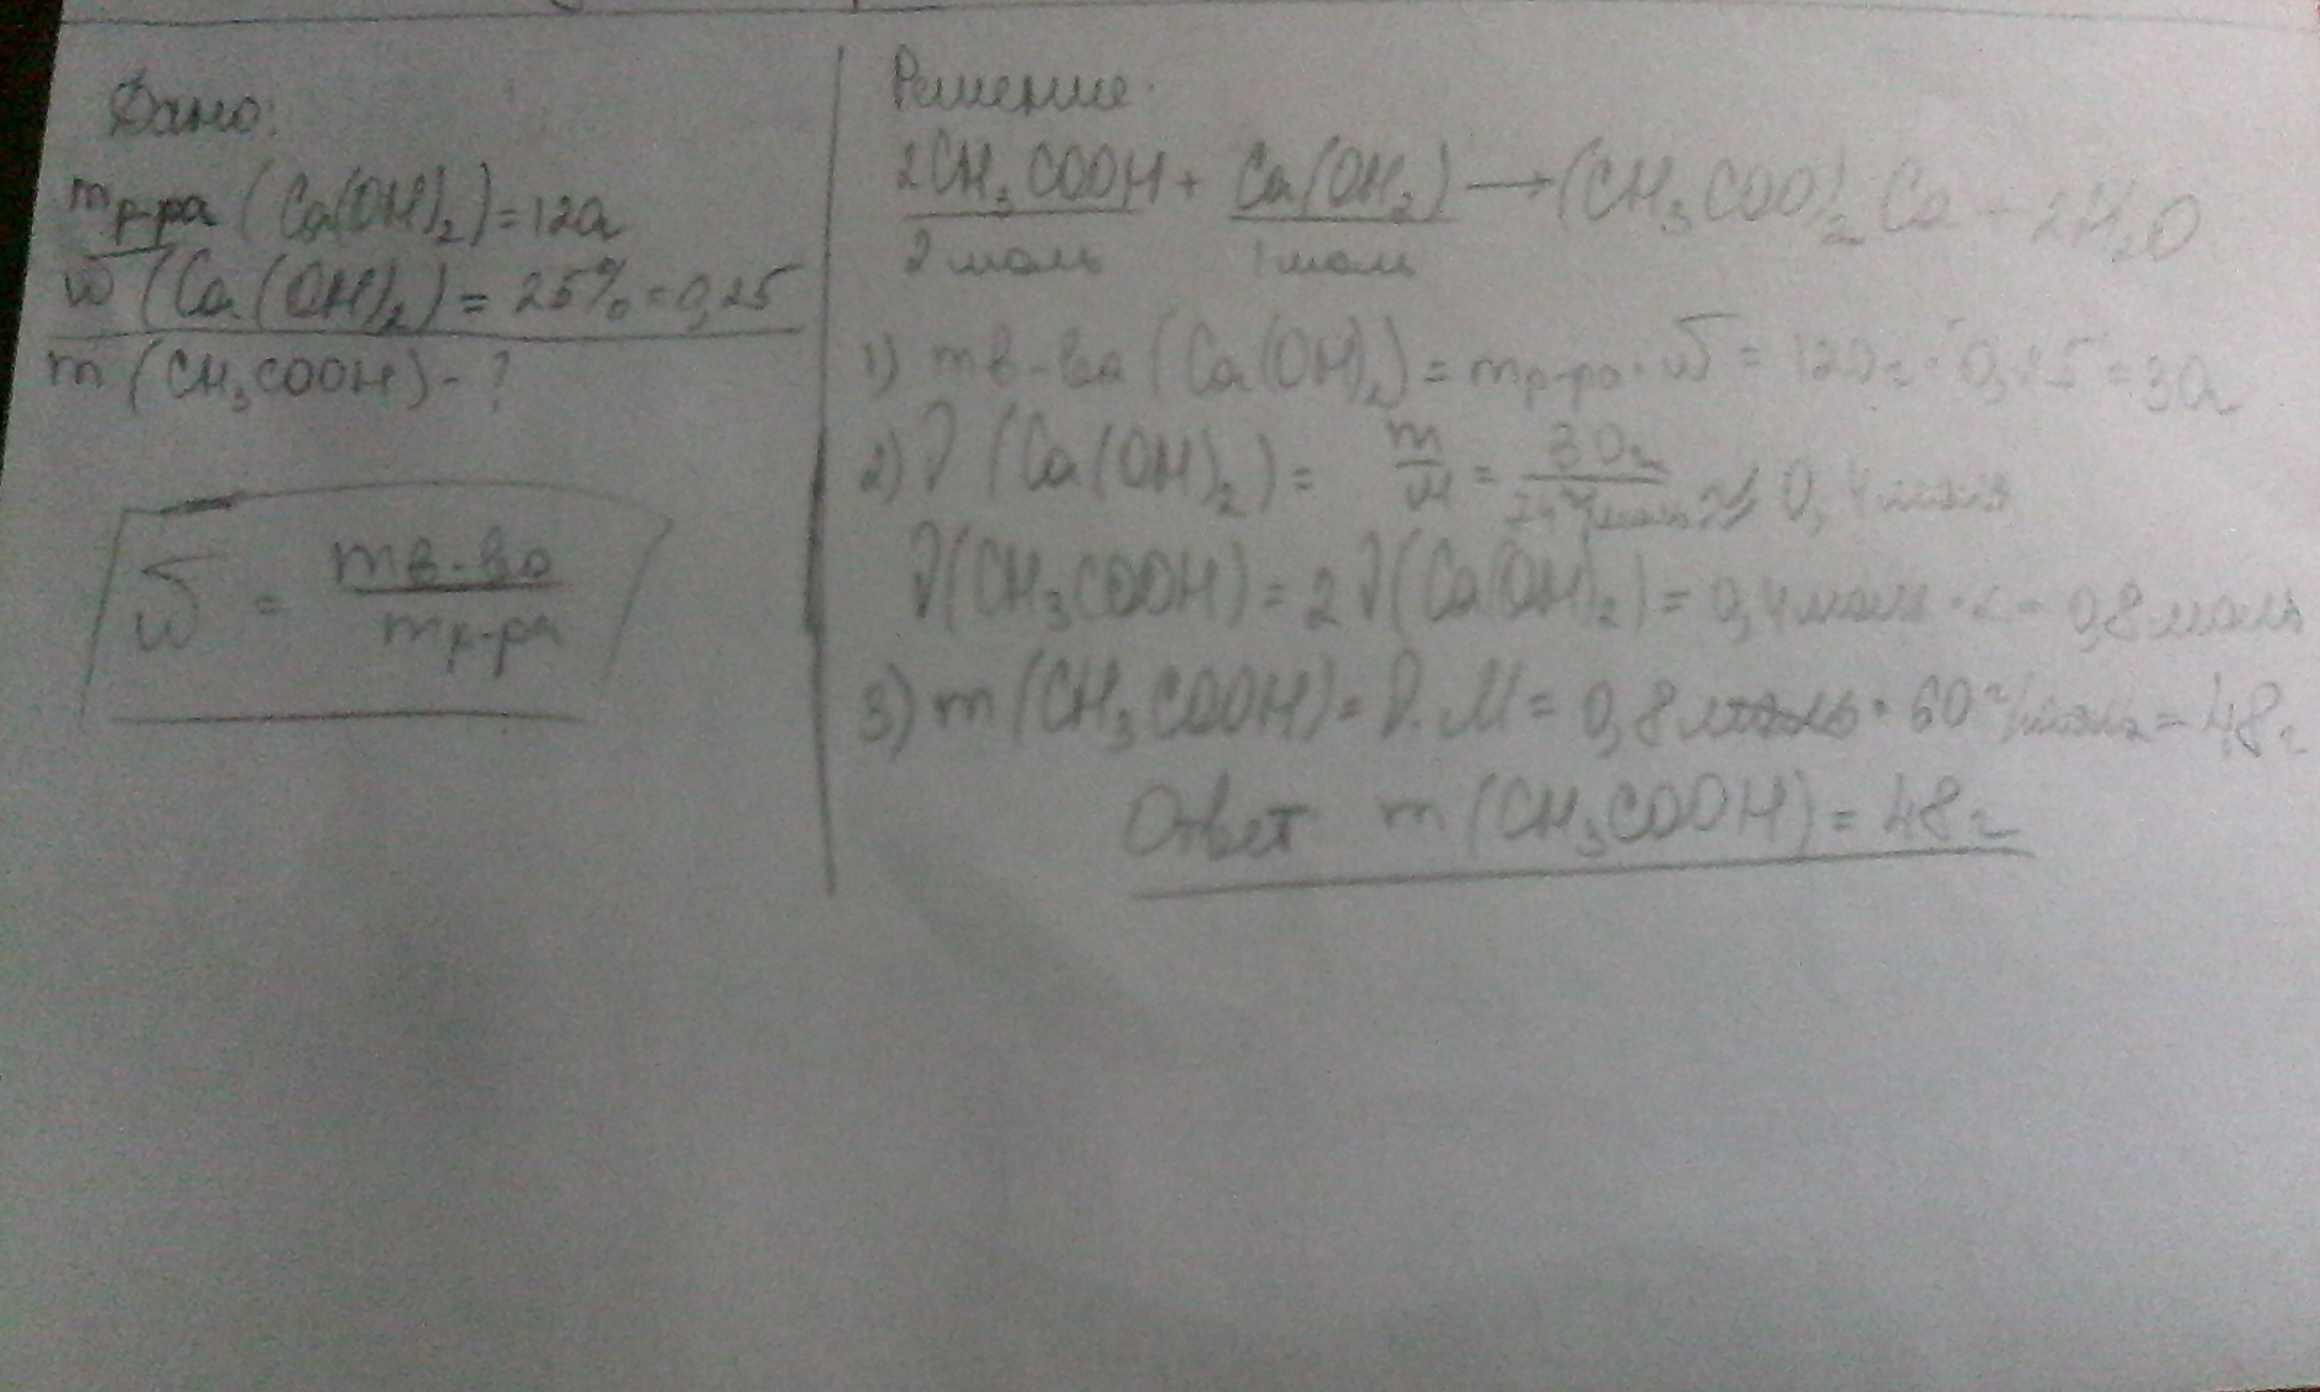 Дано:
mр-ра (Ca(OH)₂) = 120г
ω (Ca(OH)₂) = 25% = 0,25
m (CH₃COOH) - ?
ω = mв-ва / mр-ра
Решение:
2CH₃COOH + Ca(OH₂) → (CH₃COO)₂Ca + 2H₂O
2 моль 1 моль
1) mв-ва (Ca(OH)₂) = mр-ра · ω = 120г · 0,25 = 30г
2) ν (Ca(OH)₂) = m/M = 30г / 74г/моль ≈ 0,4 моль
ν(CH₃COOH) = 2ν(Ca(OH)₂) = 0,4 моль · 2 = 0,8 моль
3) m (CH₃COOH) = ν · M = 0,8 моль · 60 г/моль = 48г
Ответ m (CH₃COOH) = 48г